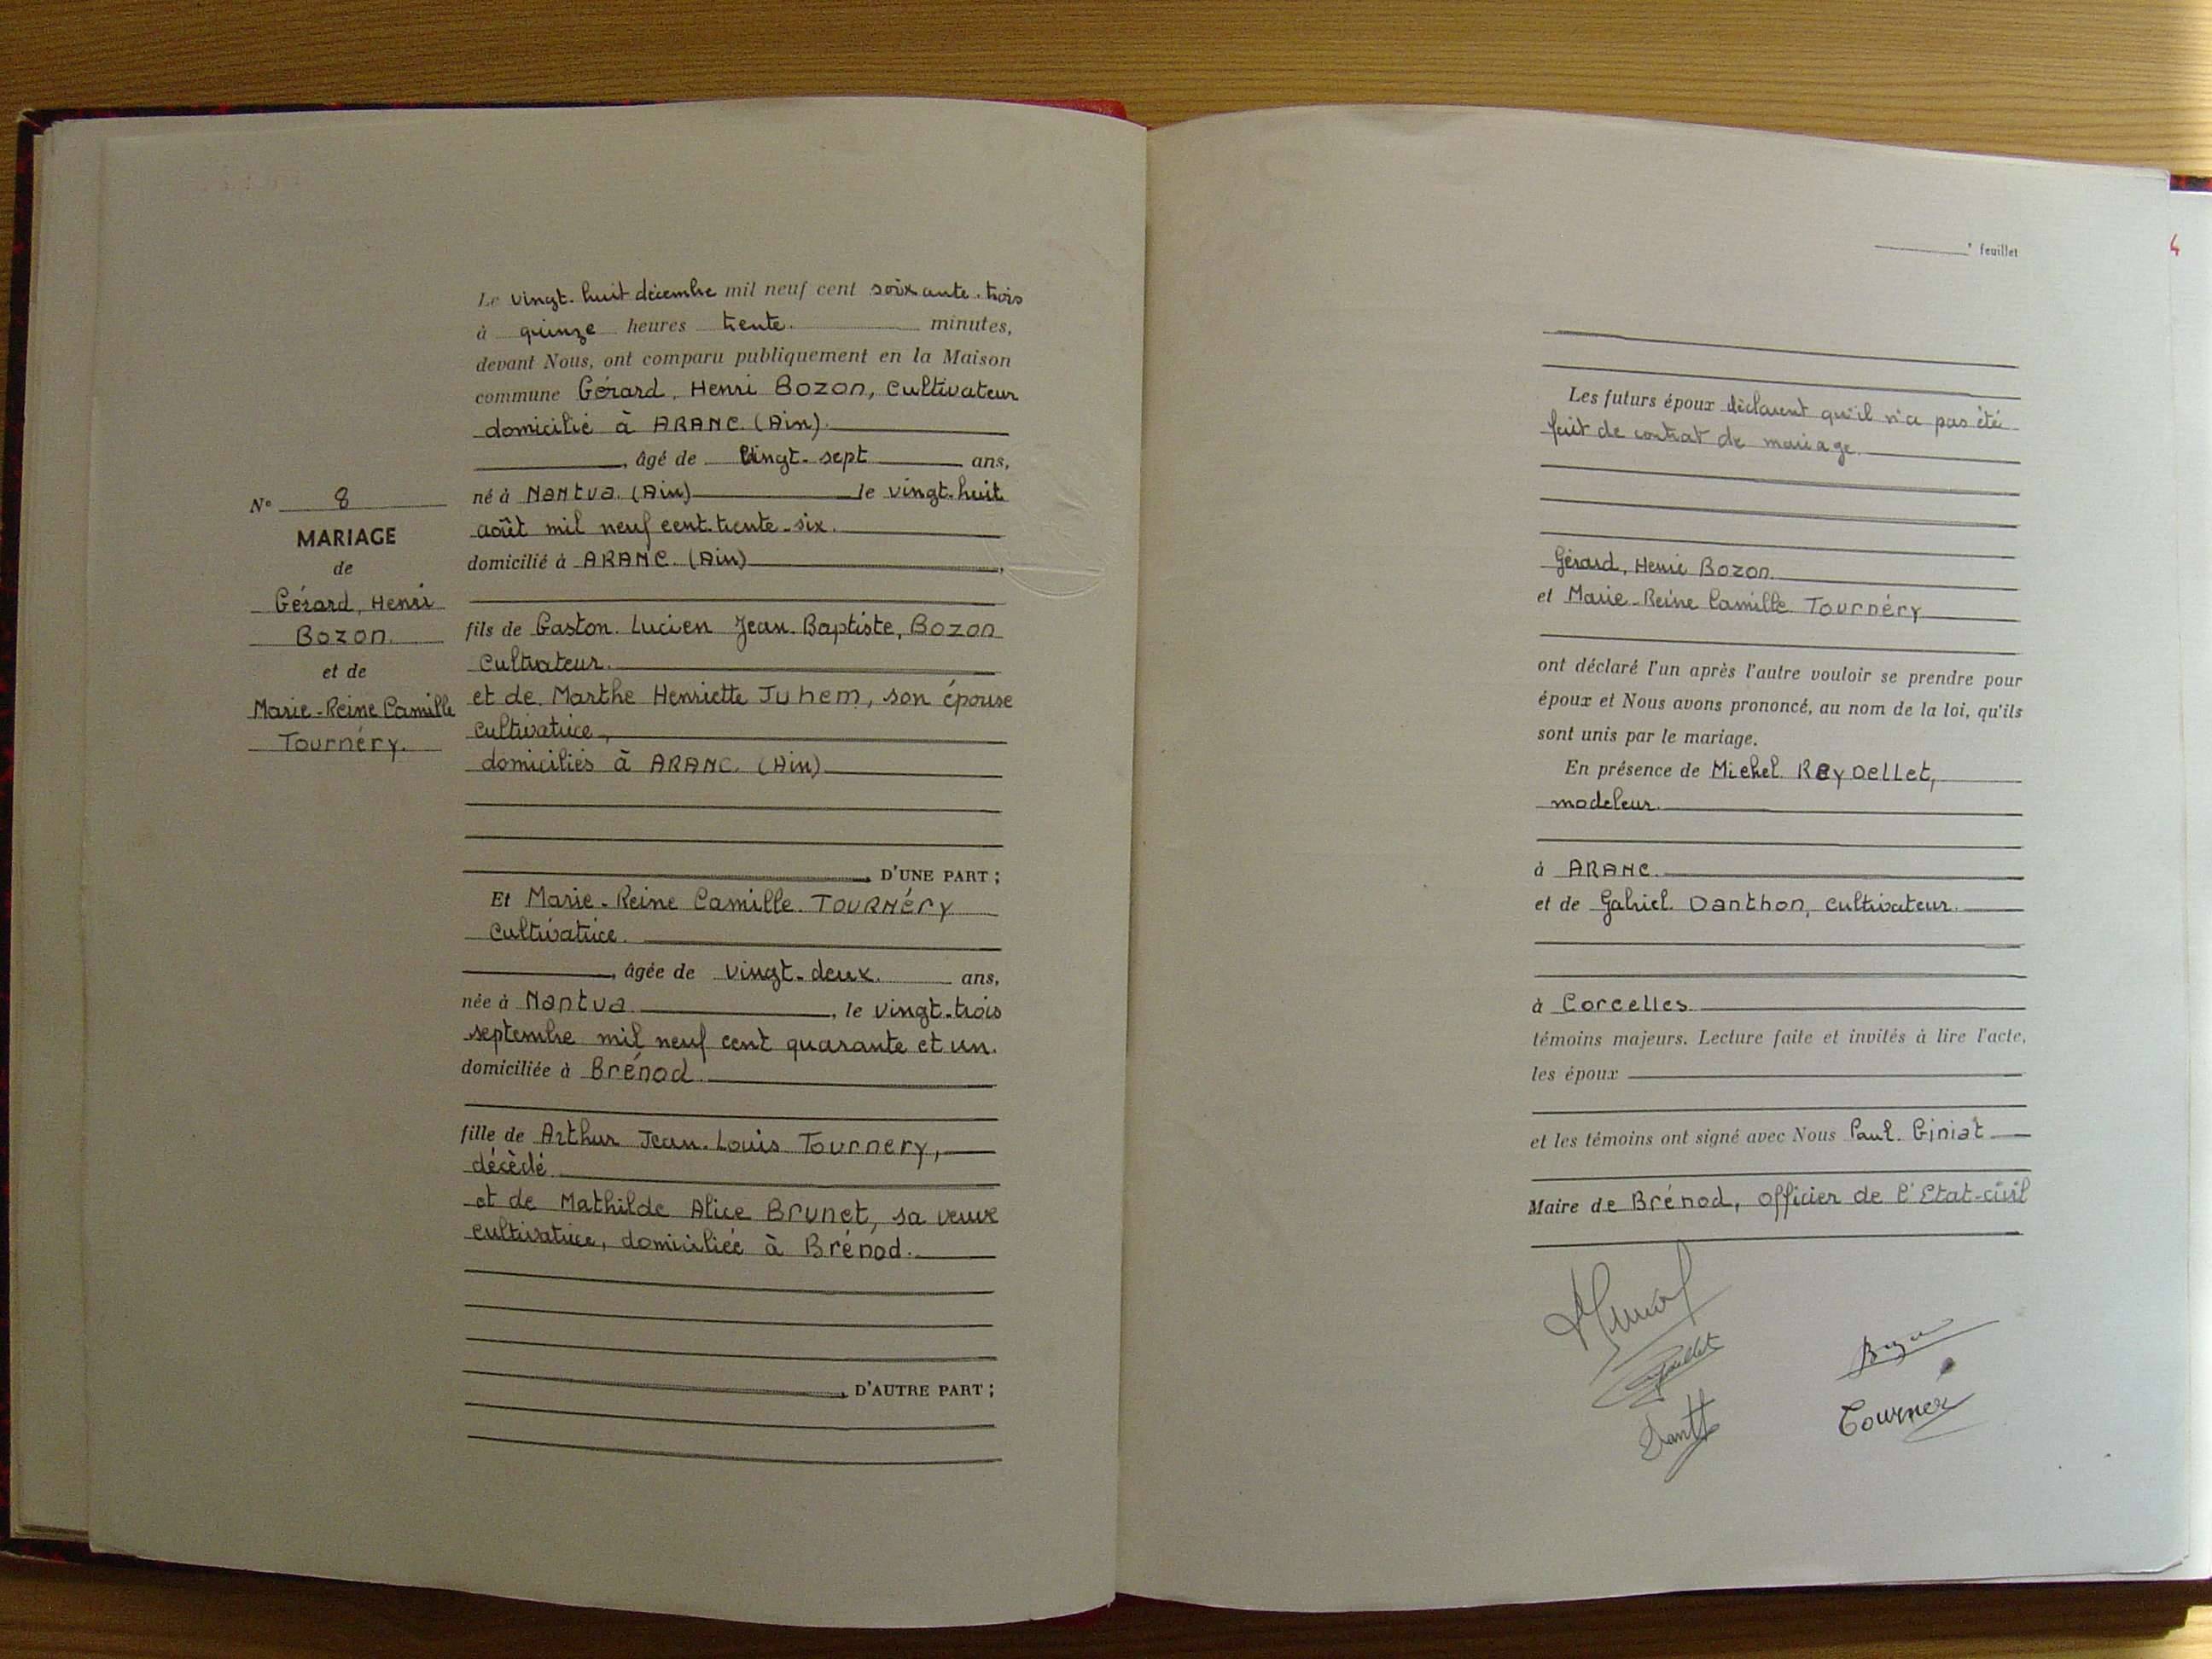 N° 8
MARIAGE
de
Gérard, Henri
Bozon.
et de
Marie-Reine Camille
Tournéry.
Le vingt-huit décembre mil neuf cent soixante-trois
à quinze heures trente. minutes,
devant Nous, ont comparu publiquement en la Maison
commune Gérard, Henri Bozon, cultivateur
domicilié à ARANC. (Ain).
, âgé de vingt-sept ans,
né à Nantua. (Ain) le vingt-huit
août mil neuf cent-trente-six.
domicilié à ARANC. (Ain)
fils de Gaston. Lucien Jean-Baptiste, Bozon
cultivateur.
et de Marthe Henriette Juhem, son épouse
cultivatrice,
domiciliés à ARANC. (Ain)
, D'UNE PART ;
Et Marie-Reine Camille. TOURNÉRY
cultivatrice.
, âgée de vingt-deux. ans,
née à Nantua , le vingt-trois
septembre mil neuf cent quarante et un.
domiciliée à Brénod.
fille de Arthur Jean-Louis Tournery,
décédé
et de Mathilde Alice Brunet, sa veuve
cultivatrice, domiciliée à Brénod.
, D'AUTRE PART ;
e feuillet
4
Les futurs époux déclarent qu'il n'a pas été
fait de contrat de mariage.
Gérard, Henri Bozon.
et Marie-Reine Camille Tournéry
ont déclaré l'un après l'autre vouloir se prendre pour
époux et Nous avons prononcé, au nom de la loi, qu'ils
sont unis par le mariage.
En présence de Michel Reydellet,
modeleur.
à ARANC.
et de Gabriel Danthon, cultivateur.
à Corcelles.
témoins majeurs. Lecture faite et invités à lire l'acte,
les époux
et les témoins ont signé avec Nous Paul. Giniat
Maire de Brénod, officier de l'Etat-civil